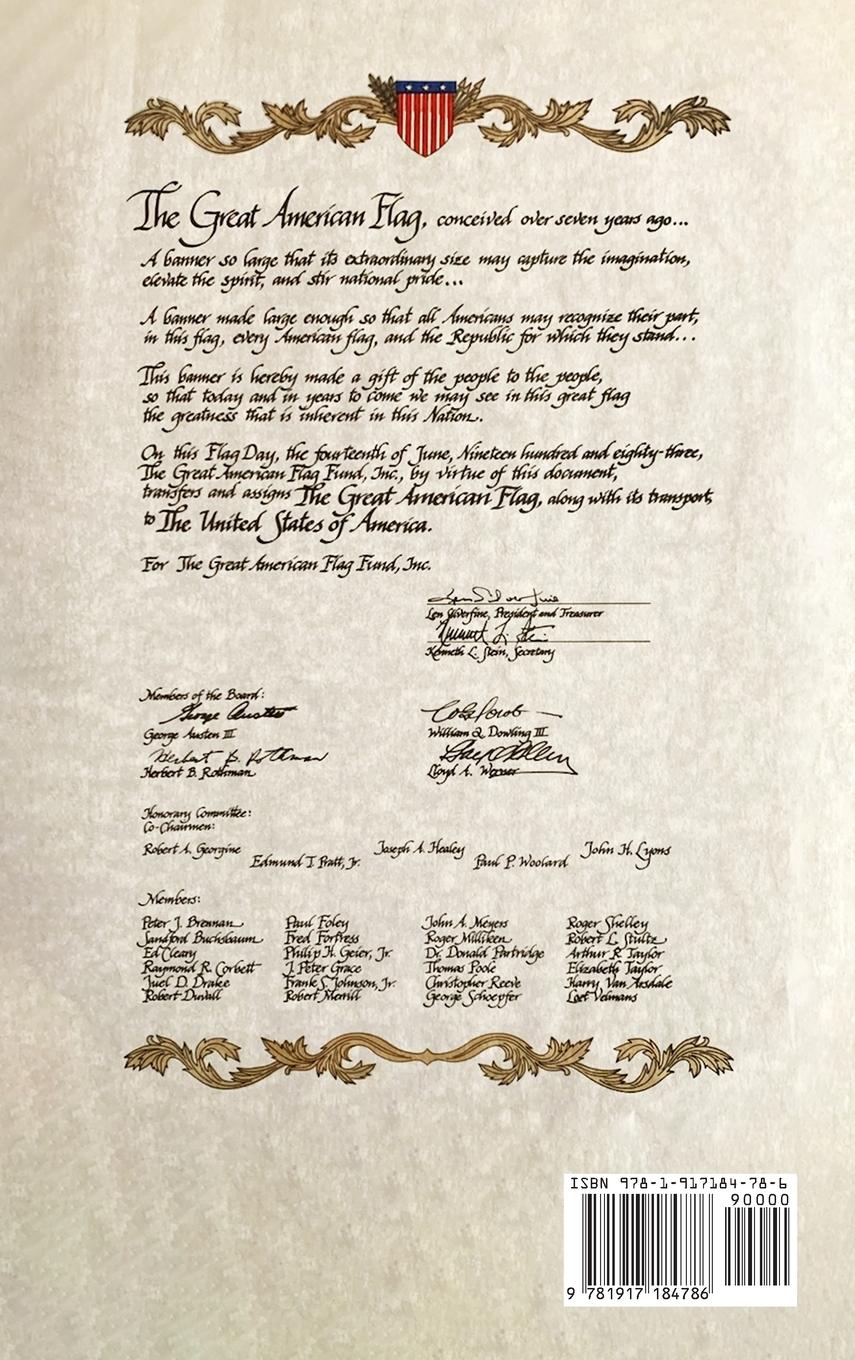 The Great American Flag, conceived over seven years ago...
A banner so large that its extraordinary size may capture the imagination,
elevate the spirit, and stir national pride...
A banner made large enough so that all Americans may recognize their part,
in this flag, every American flag, and the Republic for which they stand...
This banner is hereby made a gift of the people to the people,
so that today and in years to come we may see in this great flag
the greatness that is inherent in this Nation.
On this Flag Day, the fourteenth of June, Nineteen hundred and eighty-three,
The Great American Flag Fund, Inc., by virtue of this document,
transfers and assigns The Great American Flag, along with its transport,
to The United States of America.
For The Great American Flag Fund, Inc.
Len Silverfine, President and Treasurer
Kenneth L. Stein, Secretary
Members of the Board:
George Austen
George Austen III
William Q. Dowling III
Herbert B. Rothman
Herbert B. Rothman
Lloyd A. Werner
Honorary Committee:
Co-Chairmen:
Robert A. Georgine
Edmund T. Pratt, Jr.
Joseph A. Healey
Paul P. Woolard
John H. Lyons
Members:
Peter J. Brennan
Sandford Buchsbaum
Ed Cleary
Raymond R. Corbett
Juel D. Drake
Robert Duvall
Paul Foley
Fred Fortress
Philip H. Geier, Jr.
J. Peter Grace
Frank S. Johnson, Jr.
Robert Merrill
John A. Meyers
Roger Milliken
Dr. Donald Partridge
Thomas Poole
Christopher Reeve
George Schoepfer
Roger Shelley
Robert L. Stultz
Arthur R. Taylor
Elizabeth Taylor
Harry Van Arsdale
Loet Velmans
ISBN 978-1-917184-78-6
90000
9 781917 184786